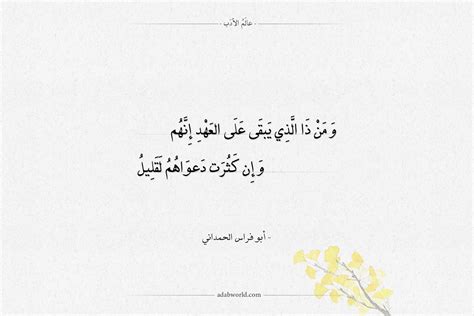 - عالم الأدب -
وَمَنْ ذَا الَّذِي يَبقَى عَلَى العَهْدِ إِنَّهُم
وَإِن كَثُرَت دَعوَاهُمُ لَقَلِيلُ
- أبو فراس الحمداني
adabworld.com